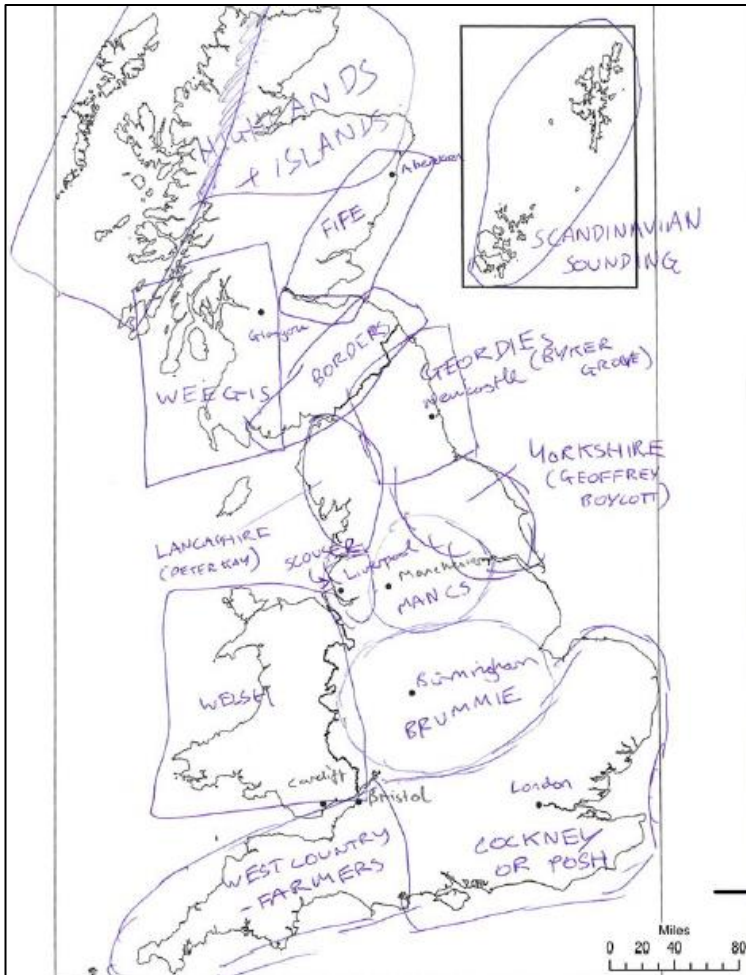 HIGHLANDS
+ ISLANDS
Aberdeen
FIFE
SCANDINAVIAN
SOUNDING
Glasgow
BORDERS
WEEGIS
GEORDIES
Newcastle (BYKER
GROVE)
YORKSHIRE
(GEOFFREY
BOYCOTT)
LANCASHIRE
(PETER KAY)
SCOUSER
Liverpool
Manchester
MANCS
WELSH
Birmingham
BRUMMIE
Cardiff
Bristol
London
WEST COUNTRY
-FARMERS
COCKNEY
OR POSH
Miles
0 20 40 80